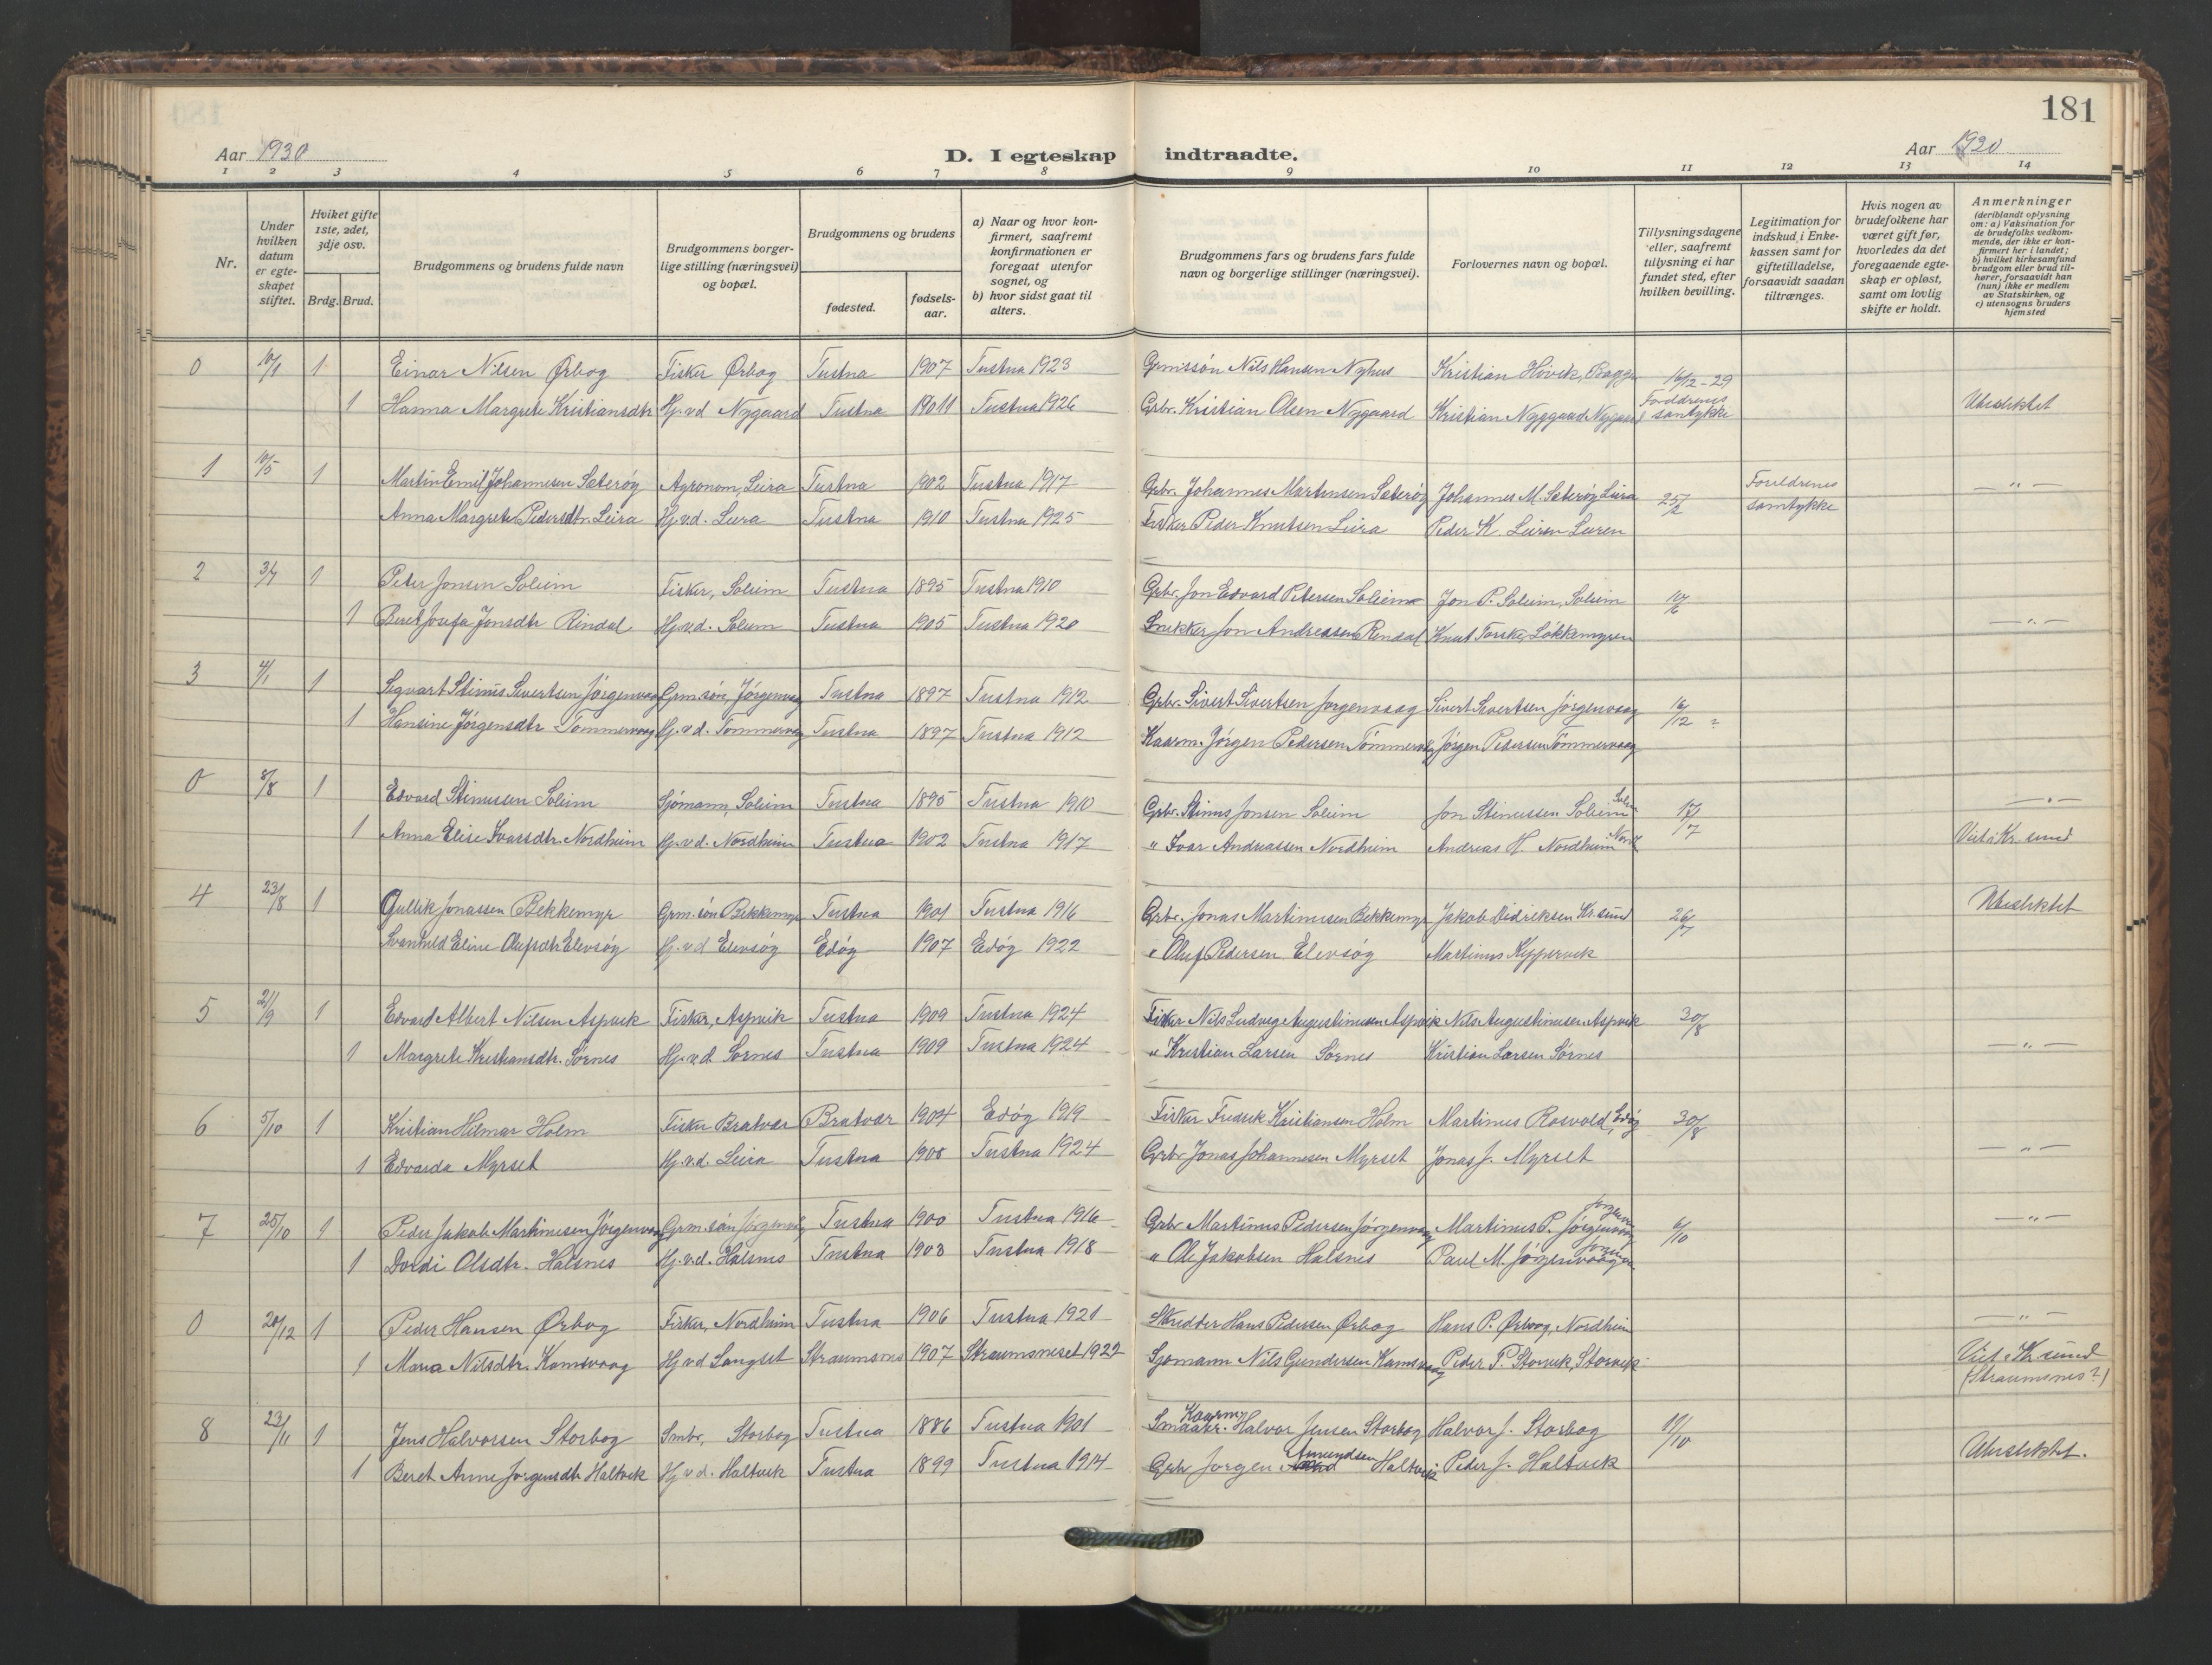 181
Aar 1930
D. I egteskap indtraadte.
Aar 1930
1 2 3 4 5 6 7 8 9 10 11 12 13 14
Nr.
Under hvilken datum er egteskapet stiftet.
Hviket gifte 1ste, 2det, 3dje osv.
Brdg. Brud.
Brudgommens og brudens fulde navn
Brudgommens borgerlige stilling (næringsvei) og bopæl.
Brudgommens og brudens
fødested.
fødselsaar.
a) Naar og hvor konfirmert, saafremt konfirmationen er foregaat utenfor sognet, og
b) hvor sidst gaat til alters.
Brudgommens fars og brudens fars fulde navn og borgerlige stillinger (næringsvei).
Forlovernes navn og bopæl.
Tillysningsdagene eller, saafremt tillysning ei har fundet sted, efter hvilken bevilling.
Legitimation for indskud i Enkekassen samt for giftetilladelse, forsaavidt saadan tiltrænges.
Hvis nogen av brudefolkene har været gift før, hvorledes da det foregaaende egteskap er opløst, samt om lovlig skifte er holdt.
Anmerkninger (deriblandt oplysning om: a) Vaksination for de brudefolks vedkommende, der ikke er konfirmert her i landet; b) hvilket kirkesamfund brudgom eller brud tilhører, forsaavidt han (hun) ikke er medlem av Statskirken, og c) utensogns bruders hjemsted
0 10/1 1 Einar Nilsen Ørbog Fisker Ørbog Tustna 1907 Tustna 1923 Grmissøn Nils Hansen Nyhus Kristian Hövik, 16/12-29
1 Hanna Margrete Kristiansdtr Hj.v.d Nygaard Tustna 1911 Tustna 1926 Grbr. Kristian Olsen Nygaard Kristian Nyggaard Nygaard Forældrenes samtykke Uteslektet
1 10/5 1 Martin Emil Johannesen Sæterøy Agronom, Leira Tustna 1902 Tustna 1917 Grbr. Johannes Martinsen Sæterøy Johannes M. Sæterøy Leira 25/2 Foreldrenes samtykke — " —
Anna Margrete Pedersdtr. Leira Hj.v.d. Leira Tustna 1910 Tustna 1925 Fisker Peder Knutsen Leira Peder K. Leiren Leiren
2 3/7 1 Peter Jonsen Soleim Fisker, Soleim Tustna 1895 Tustna 1910 Grbr. Jon Edvard Petersen Soleim Jon P. Soleim, Soleim 10/6
1 Beret Josefa Jonsdtr Rindal Hj.v.d. Soleim Tustna 1905 Tustna 1920 Snekker Jon Andreassen Rendal Knut Torske, Løkkemyren — " —
3 4/1 1 Sigvart Stinius Sivertsen Jørgenvaag Grm.søn, Jørgenvaag Tustna 1897 Tustna 1912 Grbr. Sivert Sivertsen Jørgenvaag Sivert Sivertsen Jørgenvaag 16/12 ?
1 Hansine Jørgensdtr Tømmervaag Hj.v.d. Tømmervaag Tustna 1897 Tustna 1912 Kaarm. Jørgen Pedersen Tømmervaag Jørgen Pedersen Tømmervaag
0 8/8 1 Edvard Stinussen Soleim Sjømann, Soleim Tustna 1895 Tustna 1910 Grbr. Stinus Jonsen Soleim Jon Stinussen Soleim Soleim 17/7 — " —
1 Anna Elise Ivarsdtr. Nordheim Hj.v.d. Nordheim Tustna 1902 Tustna 1917 " Ivar Andreassen Nordheim Andreas H. Nordheim Nordh Viet i Kr.sund
4 23/8 1 Gullik Jonassen Bekkemyr Grm.søn Bekkemyr Tustna 1901 Tustna 1916 Grbr. Jonas Martinusen Bekkemyr Jakob Didriksen Kr.sund 26/7 Ubeslektet
Svanhild Eline Olufsdtr Elevsøy Hj.v.d Elevsøy Edøy 1907 Edøy 1922 " Oluf Pedersen Elevsøy Martinus Kyppervik
5 2/9 1 Edvard Albert Nilsen Aspvik Fisker, Aspvik Tustna 1909 Tustna 1924 Fisker Nils Ludvig Augustinusen Aspvik Nils Augustinusen Aspvik 30/8
1 Margrete Kristiansdtr. Sørnes Hj.v.d Sørnes Tustna 1909 Tustna 1924 " Kristian Larsen Sørnes Kristian Larsen Sørnes — " —
6 5/10 1 Kristian Hilmar Holm Fisker Bratvær Bratvær 1904 Edøy 1919 Fisker Fredrik Kristiansen Holm Martinus Rosvold, Edøy 30/8
1 Edvarda Myrset Hj.v.d. Leira Tustna 1908 Tustna 1924 Grbr Jonas Johannesen Myrset Jonas J. Myrset — " —
7 25/10 1 Peder Jakob Martinusen Jørgenvaag Grm.søn Jørgenvg Tustna 1900 Tustna 1916 Grbr Martinus Pedersen Jørgenvaag Martinus P. Jørgenvaag 6/10 — " —
1 Dordi Olsdtr. Halsnes Hj.v.d. Halsnes Tustna 1903 Tustna 1918 " Ole Jakobsen Halsnes Paul M. Jørgenvaagen
0 28/12 1 Peder Hansen Ørbog Fisker, Nordheim Tustna 1906 Tustna 1921 Skredder Hans Pedersen Ørbog Hans P. Ørbog, Nordheim — " —
1 Maria Nilsdtr. Kamsvaag Hj.v.d Langset Straumsnes 1907 Straumsneset 1922 Sjømann Nils Gundersen Kamsvaag Peder P. Storvik, Storvik Viet i Kr.sund (Straumsnes?)
8 23/11 1 Jens Halvorsen Storbog Smbr, Storbog Tustna 1886 Tustna 1901 Smaabr. Kaarm. Halvor Jensen Storbog Halvor J. Storbog 11/10
1 Beret Anne Jørgensdtr Haltvik Hj.v.d. Haltvik Tustna 1899 Tustna 1914 Grbr Jørgen Amundsen Haltvik Peder J. Haltvik Ubeslektet.